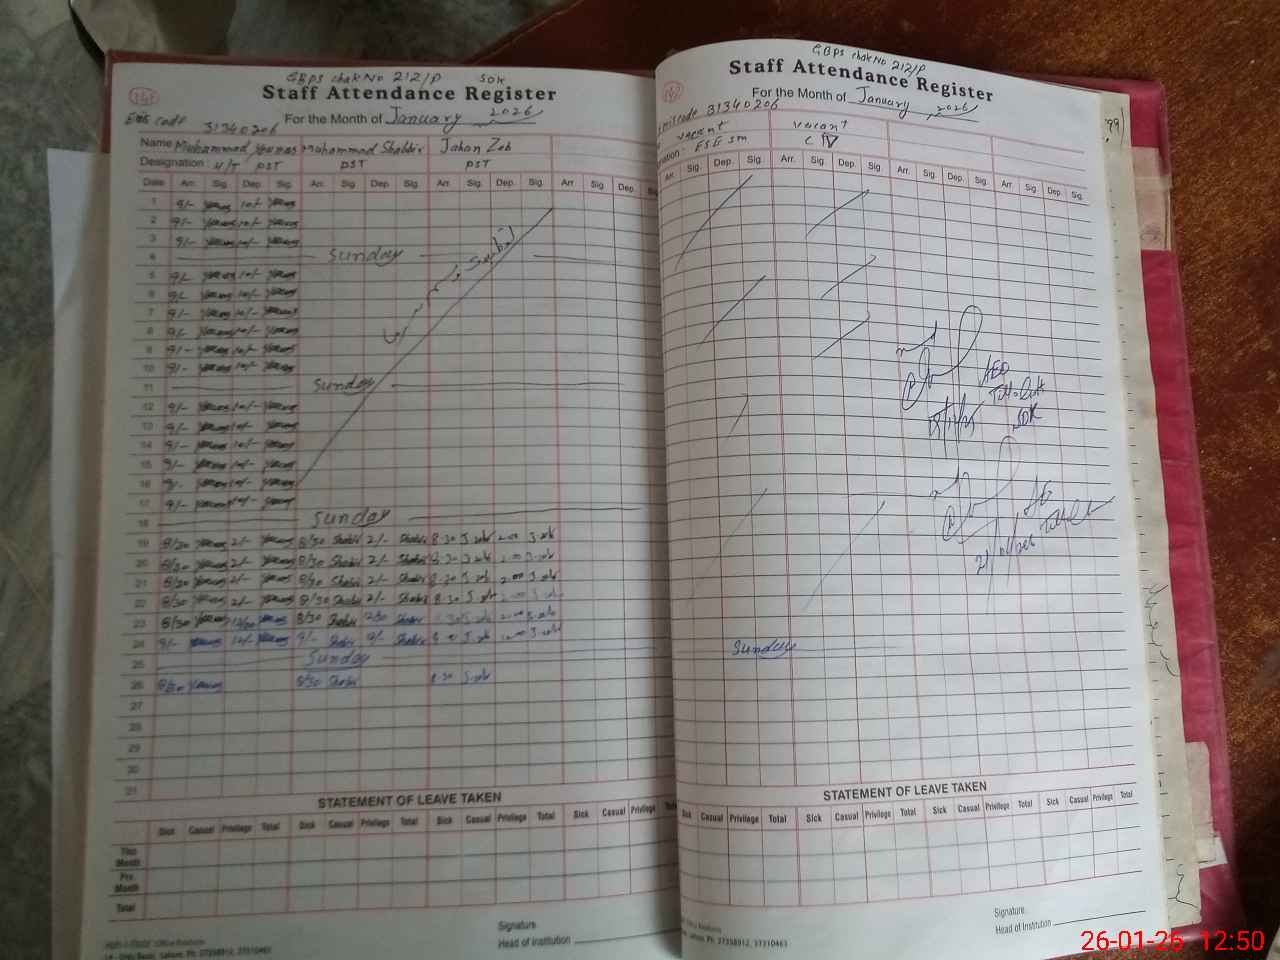 GBPS chak No 212/P SDK
Staff Attendance Register
For the Month of January 2026
Emis code 31340206
Name Muhammad Younas Muhammad Shabbir Jahan Zeb
Designation: H/T PST PST PST
Date Arr. Sig. Dep. Sig. Arr. Sig. Dep. Sig. Arr. Sig. Dep. Sig. Arr. Sig. Dep.
1 9/- Younas 10/- Younas
2 9/- Younas 10/- Younas
3 9/- Younas 10/- Younas
4 Sunday
5 9/- Younas 10/- Younas
6 9/- Younas 10/- Younas
7 9/- Younas 10/- Younas
8 9/- Younas 10/- Younas
9 9/- Younas 10/- Younas
10 9/- Younas 10/- Younas
11 Sunday
12 9/- Younas 10/- Younas
13 9/- Younas 10/- Younas
14 9/- Younas 10/- Younas
15 9/- Younas 10/- Younas
16 9/- Younas 10/- Younas
17 9/- Younas 10/- Younas
18 Sunday
19 8/30 Younas 2/- Younas 8/30 Shabir 2/- Shabir 8-30 J.zeb 2-00 J.zeb
20 8/30 Younas 2/- Younas 8/30 Shabir 2/- Shabir 8-30 J.zeb 2-00 J.zeb
21 8/30 Younas 2/- Younas 8/30 Shabir 2/- Shabir 8-30 J.zeb 2-00 J.zeb
22 8/30 Younas 2/- Younas 8/30 Shabir 2/- Shabir 8-30 J.zeb 2-00 J.zeb
23 8/30 Younas 12/30 Younas 8/30 Shabir 12/30 Shabir J.zeb J.zeb
24 9/- Younas 12/- Younas 9/- Shabir Shabir J.zeb J.zeb
25 Sunday
26 8/30 Younas 8/30 Shabir 8-30 J.zeb
27
28
29
30
31
STATEMENT OF LEAVE TAKEN
Sick Casual Privilege Total Sick Casual Privilege Total Sick Casual Privilege Total Sick Casual Privilege
This Month
Pre. Month
Total
Signature
Head of Institution
GBPS chak No 212/P
Staff Attendance Register
For the Month of January 2026
code 31340206
vacant vacant
ESE SM
Arr. Sig. Dep. Sig. Arr. Sig. Dep. Sig. Arr. Sig. Dep. Sig. Arr. Sig. Dep. Sig.
AEO
SDK
Sunday
STATEMENT OF LEAVE TAKEN
Sick Casual Privilege Total Sick Casual Privilege Total Sick Casual Privilege Total Sick Casual Privilege Total
Signature
Head of Institution
Lahore, Ph: 37358912, 37310463
26-01-26 12:50